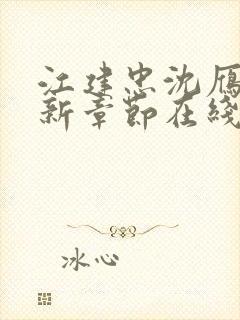 江建忠沈雁
新章节在线
冰心